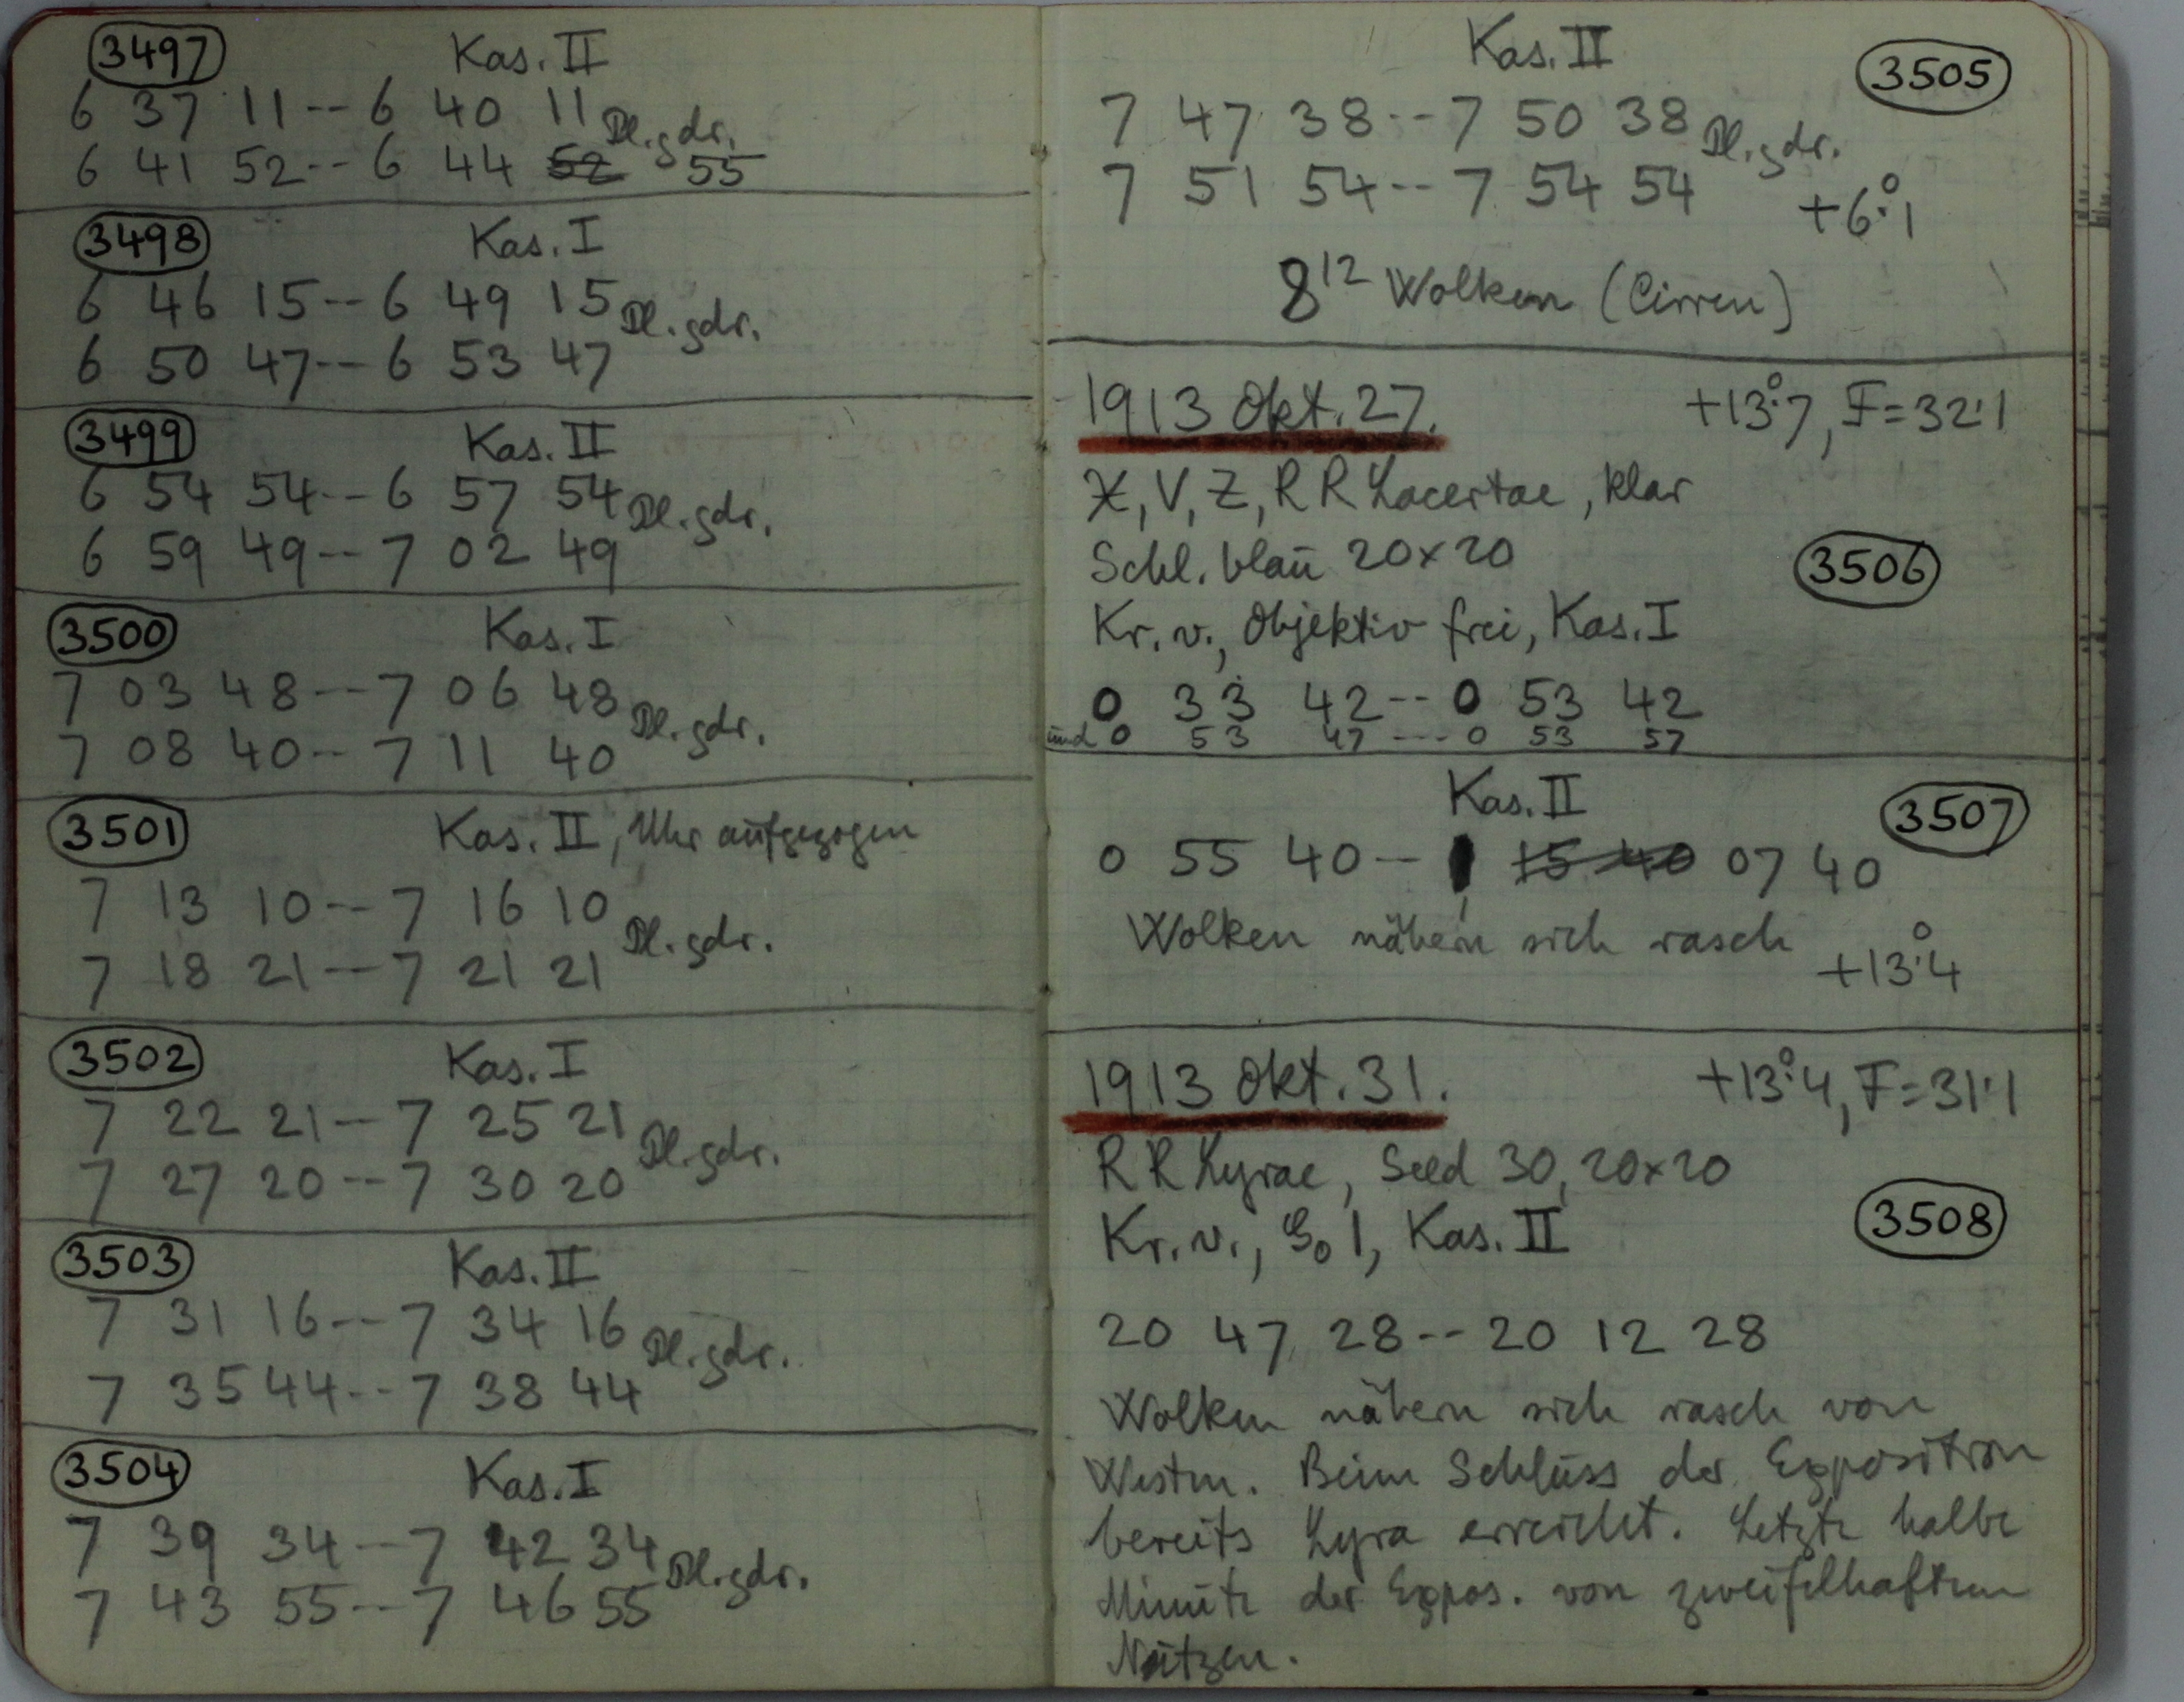 3497 Kas. II
6 37 11 -- 6 40 11 Pl. gdr.
6 41 52 -- 6 44 52 55
3498 Kas. I
6 46 15 -- 6 49 15 Pl. gdr.
6 50 47 -- 6 53 47
3499 Kas. II
6 54 54 -- 6 57 54 Pl. gdr.
6 59 49 -- 7 02 49
3500 Kas. I
7 03 48 -- 7 06 48 Pl. gdr.
7 08 40 -- 7 11 40
3501 Kas. II, Uhr aufgezogen
7 13 10 -- 7 16 10 Pl. gdr.
7 18 21 -- 7 21 21
3502 Kas. I
7 22 21 -- 7 25 21 Pl. gdr.
7 27 20 -- 7 30 20
3503 Kas. II
7 31 16 -- 7 34 16 Pl. gdr.
7 35 44 -- 7 38 44
3504 Kas. I
7 39 34 -- 7 42 34 Pl. gdr.
7 43 55 -- 7 46 55
Kas. II 3505
7 47 38 -- 7 50 38 Pl. gdr.
7 51 54 -- 7 54 54 +6°.1
8 12 Wolken (Cirren)
1913 Okt. 27. +13°.7, F=32.1
X, V, Z, RR Lacertae, klar
Schl. blau 20x20 3506
Kr. v., Objektiv frei, Kas. I
0 33 42 -- 0 53 42
und 0 53 47 --- 0 53 57
Kas. II 3507
0 55 40 -- 1 15 40 07 40
Wolken nähern sich rasch +13°.4
1913 Okt. 31. +13°.4, F=31.1
RR Lyrae, Seed 30, 20x20
Kr. v., 1, Kas. II 3508
20 47 28 -- 20 12 28
Wolken nähern sich rasch von
Westen. Beim Schluss der Exposition
bereits Lyra erreicht. Letzte halbe
Minute der Expos. von zweifelhaftem
Nutzen.